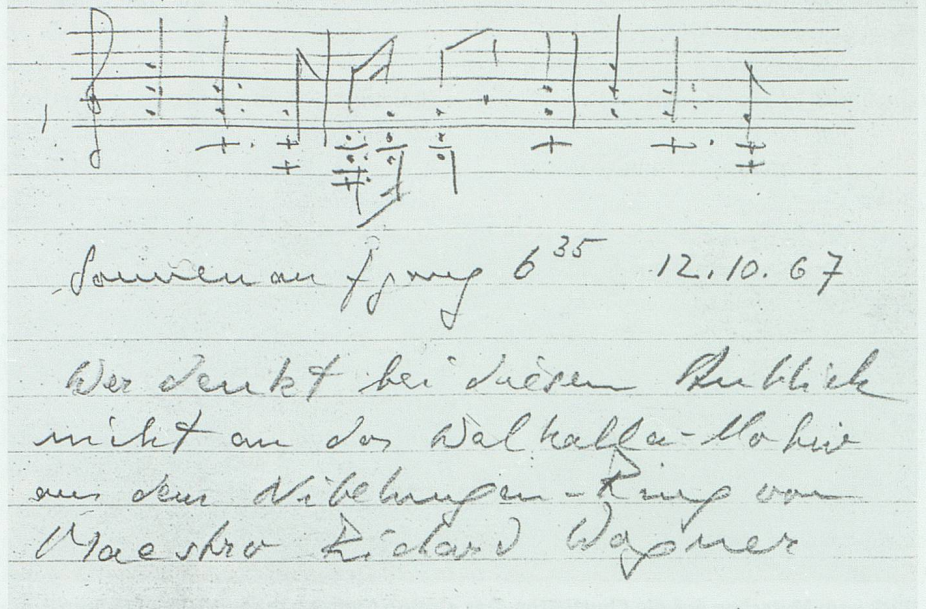 Sonnenaufgang 6 35 12.10.67
Wer denkt bei diesem Anblick
nicht an das Walhalla-Motiv
aus dem Nibelungen-Ring von
Maestro Richard Wagner